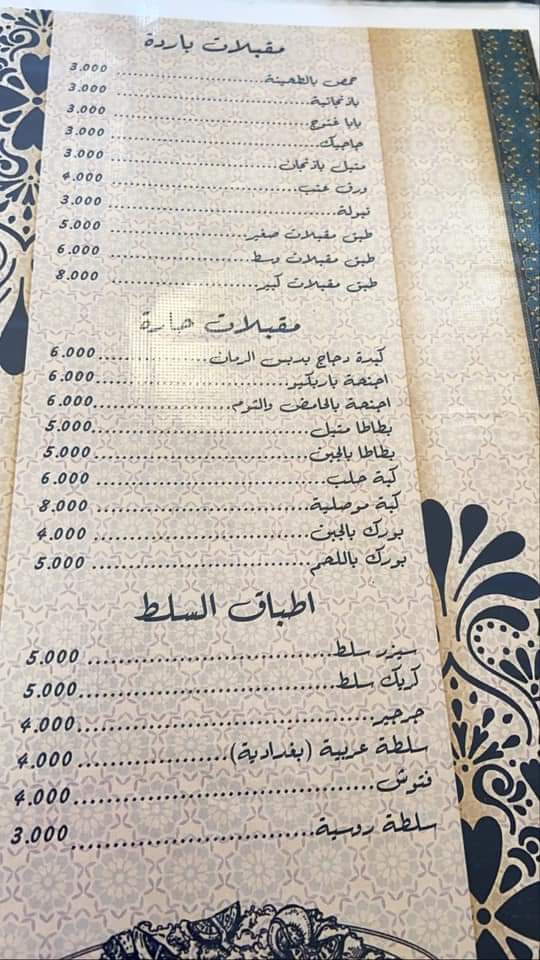 مقبلات باردة
حمص بالطحينة 3.000
باذنجانية 3.000
بابا غنوج 3.000
جاجيك 3.000
متبل باذنجان 3.000
ورق عنب 4.000
تبولة 3.000
طبق مقبلات صغير 5.000
طبق مقبلات وسط 6.000
طبق مقبلات كبير 8.000
مقبلات حارة
كبدة دجاج بدبس الرمان 6.000
اجنحة باربكيو 6.000
اجنحة بالحامض والثوم 6.000
بطاطا متبل 5.000
بطاطا بالجبن 5.000
كبة حلب 6.000
كبة موصلية 8.000
بورك بالجبن 4.000
بورك باللحم 5.000
اطباق السلط
سيزر سلط 5.000
كريك سلط 5.000
جرجير 4.000
سلطة عربية (بغدادية) 4.000
فتوش 4.000
سلطة روسية 3.000